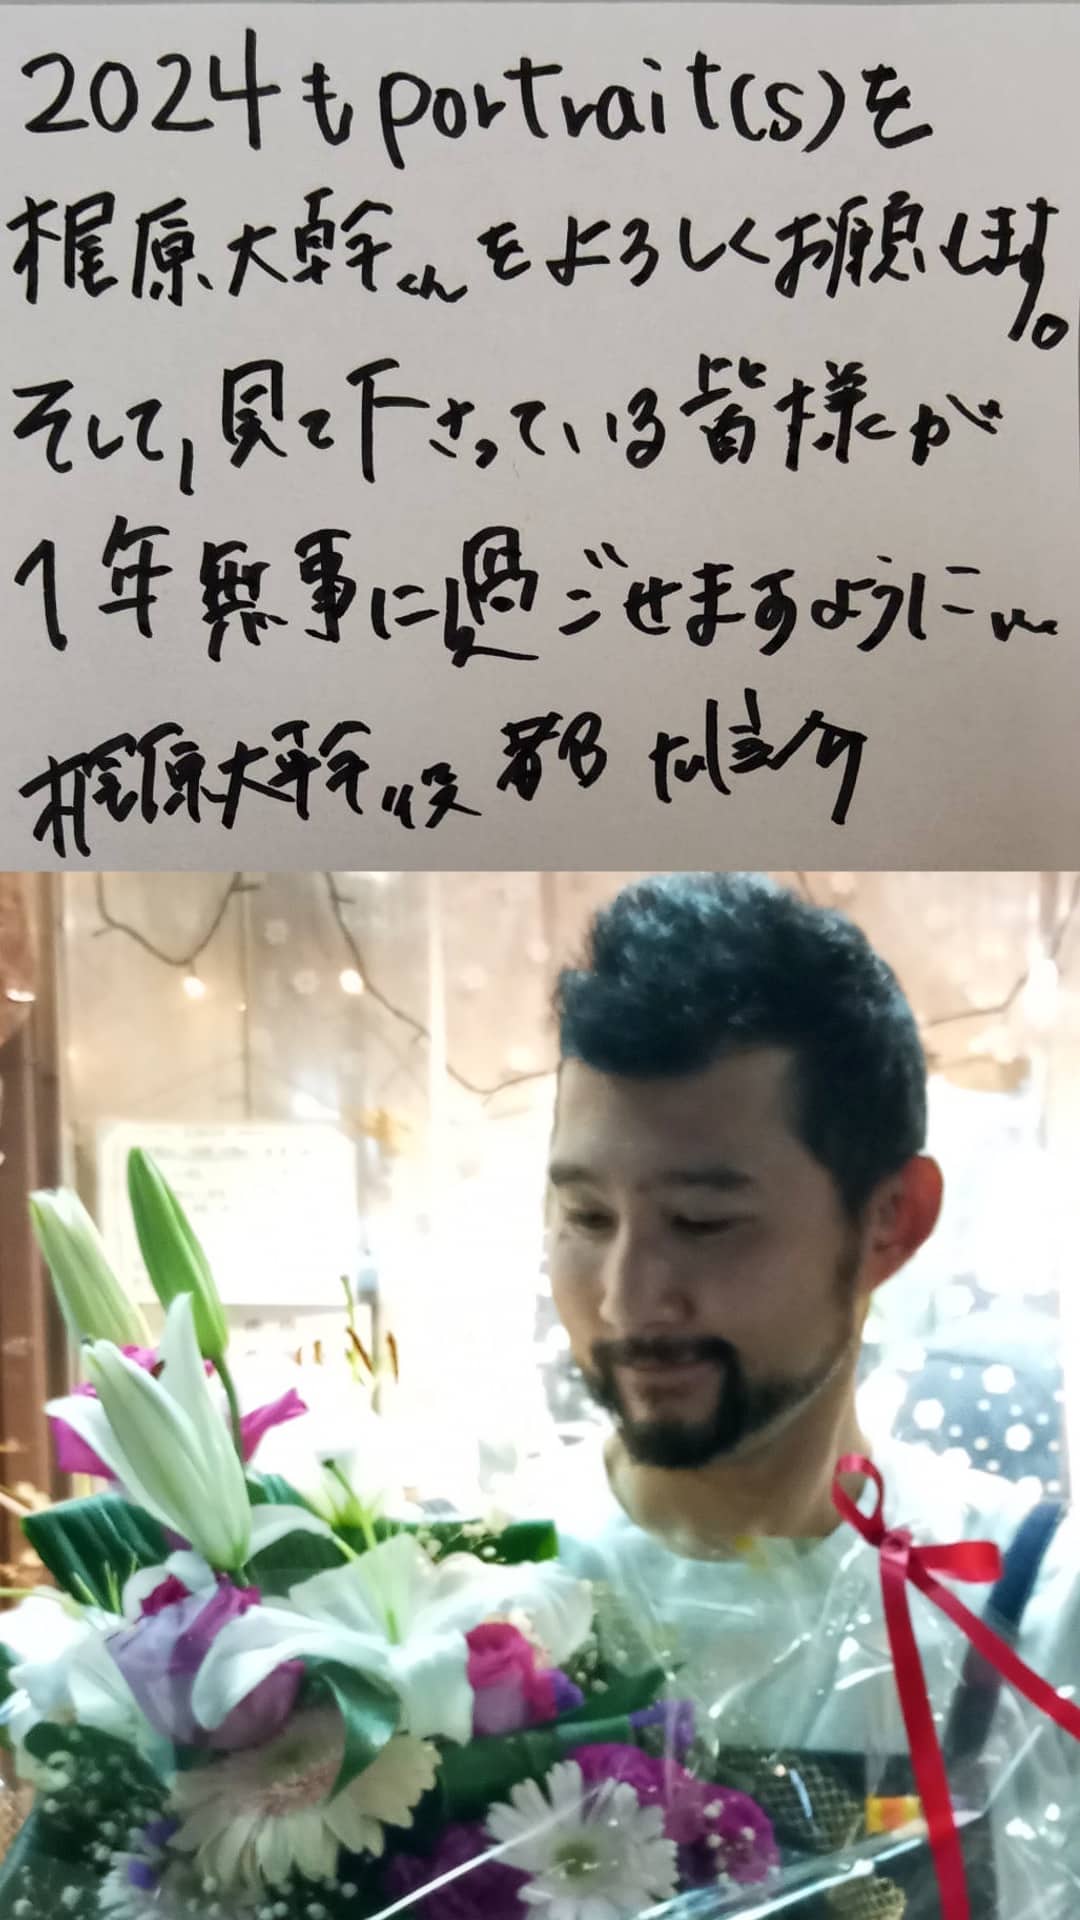 2024もportrait(s)を
梶原大幹くんをよろしくお願いします。
そして,見て下さっている皆様が
1年無事に過ごせますように…
梶原大幹役